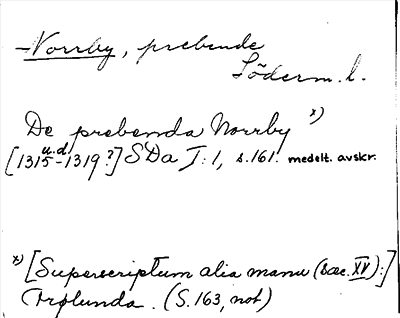 -Norrby, prebende
Söderm. l.
De prebenda Norrby x)
[1315 u.d. -1319?] SDa I:1, s.161. medelt. avskr.
x) [Superscriptum alia manu (sæc. XV):]
Frølunda. (S.163, not)